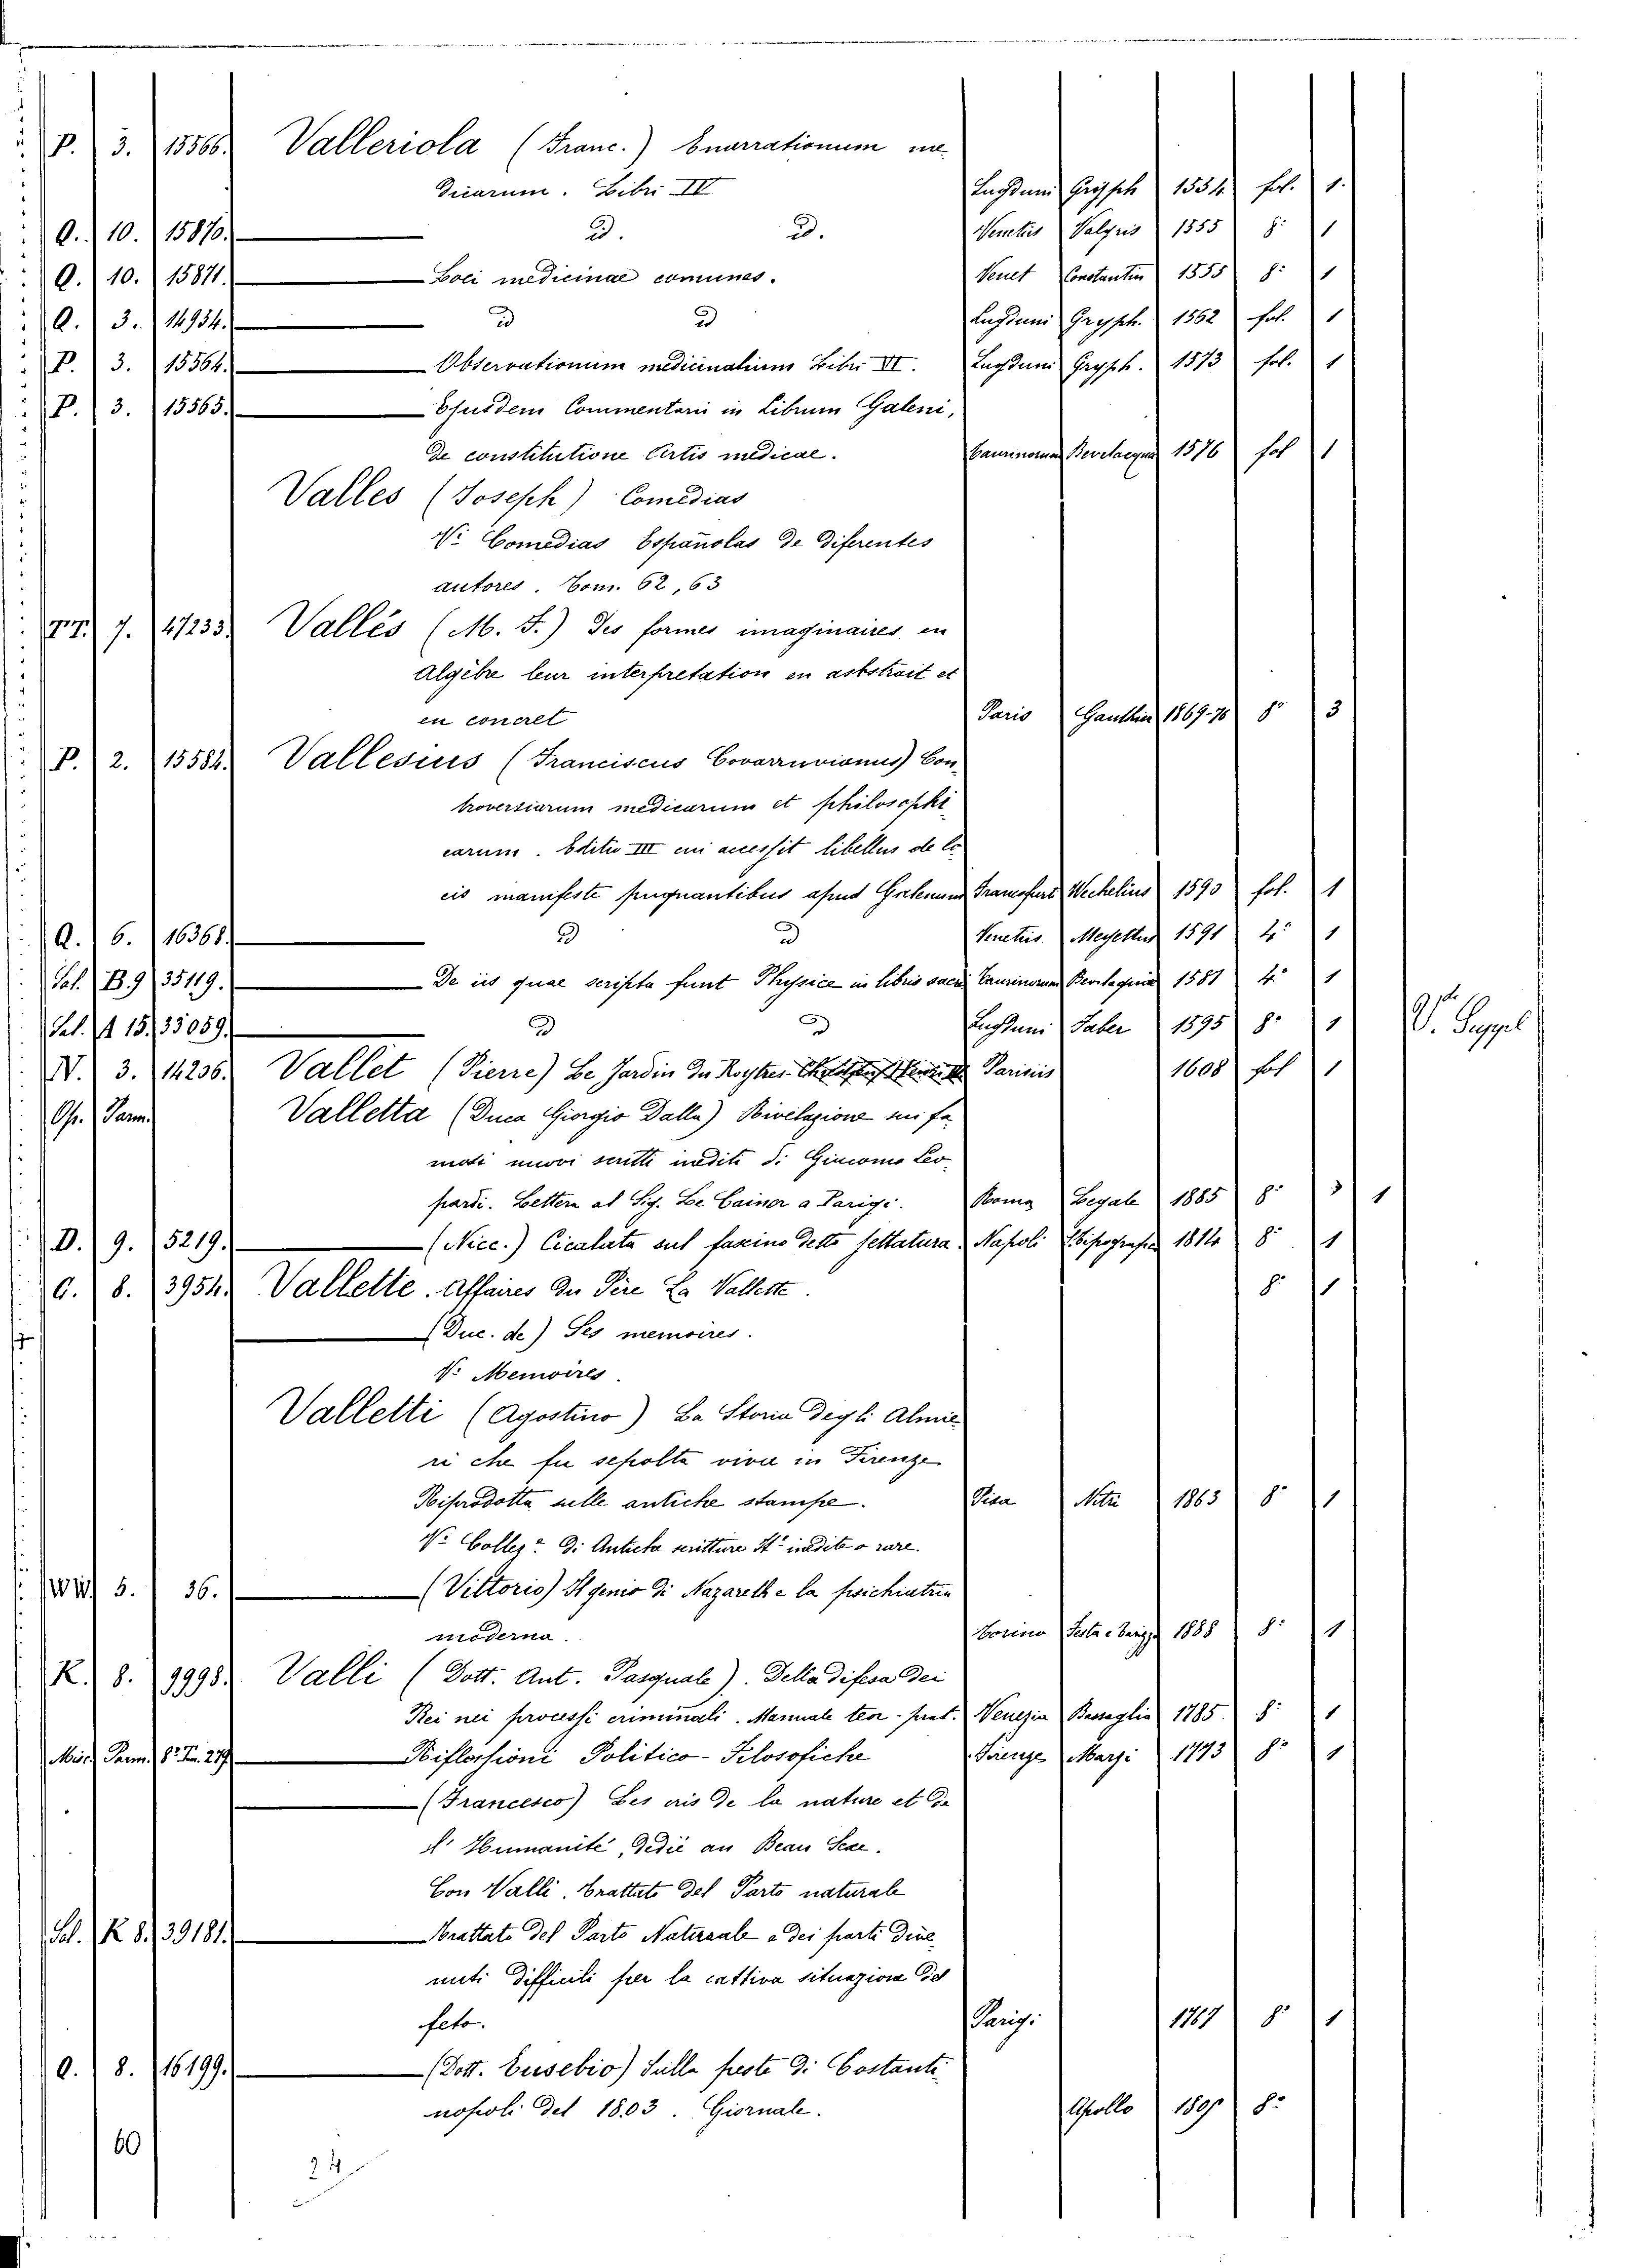 P. 3. 15566. Valleriola (Franc.) Enarrationum me-
dicarum. Libri IV Lugduni Gryph 1554 fol. 1.
Q. 10. 15870. id. id. Venetiis Valgris 1555 8º 1
Q. 10. 15871. Loci medicinae comunes. Venet Constantin 1555 8º 1
Q. 3. 14934. id id Lugduni Gryph. 1562 fol. 1
P. 3. 15564. Observationum medicinalium Libri VI. Lugduni Gryph. 1573 fol. 1
P. 3. 15565. Ejusdem Commentarii in Librum Galeni,
de constitutione Artis medicae. Taurinorum Bevelacqua 1576 fol 1
Valles (Joseph) Comedias
V. Comedias Españolas de diferentes
autores. Tom. 62, 63
TT. 7. 47233. Vallès (M. F.) Des formes imaginaires en
Algèbre leur interpretation en asbstrait et
en concret Paris Gauthier 1869-76 8º 3
P. 2. 15584. Vallesius (Franciscus Covarruvianus) Con-
troversiarum medicarum et philosophi-
carum. Editio III cui accessit libellus de lo-
cis manifeste pugnantibus apud Galenum Francofurt Wechelius 1590 fol. 1
Q. 6. 16368. id id Venetiis. Meyettus 1591 4º 1
Sal. B.9 35119. De iis quae scripta sunt Physice in libris sacris Taurinorum Bevilaquia 1581 4º 1
Sal. A 15. 33059. id id Lugduni Faber 1595 8º 1 V. Suppl
N. 3. 14236. Vallet (Pierre) Le Jardin du Roy tres Parisiis 1608 fol 1
Op. Parm. Valletta (Duca Giorgio Dalla) Rivelazione sui fa-
mosi nuovi scritti inediti di Giacomo Leo-
pardi. Lettera al Sig. Le Cainer a Parigi. Roma Legale 1885 8º 3 1
D. 9. 5219. (Nicc.) Cicalata sul fascino detto jettatura. Napoli Tipografia 1814 8º 1
C. 8. 3954. Vallette. Affaires du Père La Vallette. 8º 1
(Duc. de) Ses memoires.
V. Memoires.
Valletti (Agostino) La Storia degli Almie-
ri che fu sepolta viva in Firenze
Riprodotta sulle antiche stampe. Pisa Nitri 1863 8º 1
V. Collez. di Antiche scritture It. inedite o rare.
5. 36. (Vittorio) Il genio di Nazareth e la psichiatria
moderna. Torino 1888 8º 1
K. 8. 9998. Valli (Dott. Ant. Pasquale). Della difesa dei
Rei nei processi criminali. Manuale teor-prat. Venezia Bassaglia 1785. 8º 1
Misc. Parm. 8º To. 279 Riflessioni Politico-Filosofiche Firenze Marzi 1773 8º 1
(Francesco) Les cris de la nature et de
l'Humanité, dedié au Beau Sexe.
Con Valli. Trattato del Parto naturale
Sal. K 8. 39181. Trattato del Parto Naturale e dei parti dive-
nuti difficili per la cattiva situazione del
feto. Parigi 1767 8º 1
Q. 8. 16199. (Dott. Eusebio) Sulla peste di Costanti-
nopoli del 1803. Giornale. Apollo 8º
60
24